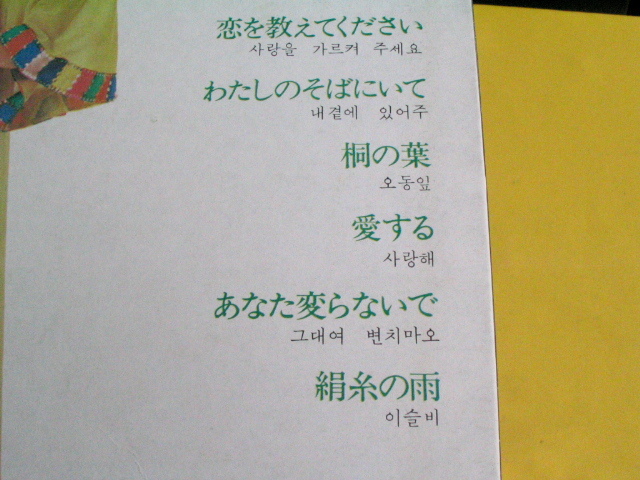 恋を教えてください
사랑을 가르켜 주세요
わたしのそばにいて
내곁에 있어주
桐の葉
오동잎
愛する
사랑해
あなた変らないで
그대여 변치마오
絹糸の雨
이슬비